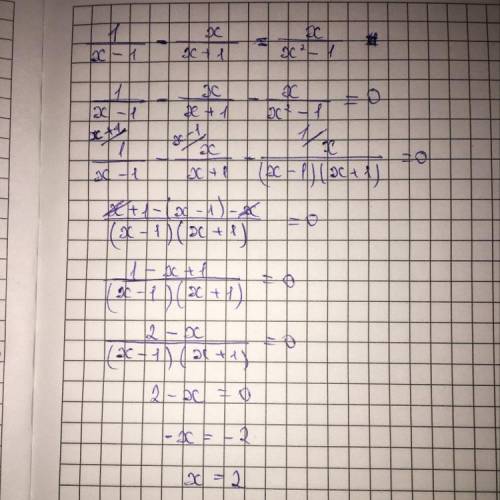 1/(x-1) - x/(x+1) = x/(x²-1)
1/(x-1) - x/(x+1) - x/(x²-1) = 0
x+1/ x-1/ 1/
1/(x-1) - x/(x+1) - x/((x-1)(x+1)) = 0
(x+1-(x-1)-x)/((x-1)(x+1)) = 0
(1-x+1)/((x-1)(x+1)) = 0
(2-x)/((x-1)(x+1)) = 0
2-x = 0
-x = -2
x = 2